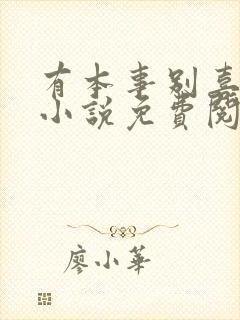 有本事别嘉
小說免費閱
廖小華